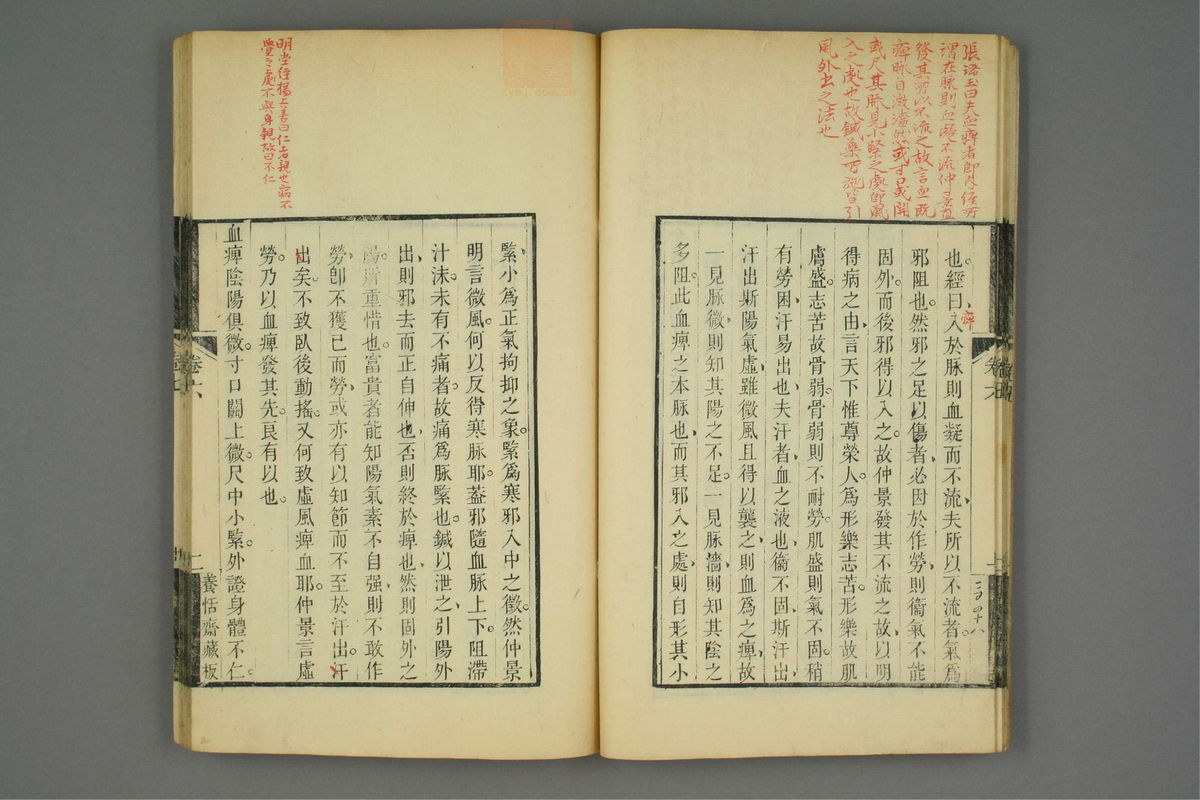 張路玉曰夫血痺者即内經所
謂在脉則血凝不流仲景直
發其所以不流之故言血既
痺脉自微濇然或寸口或關
或尺其脉見小緊之處即風
入之處也故鍼藥所施皆引
風外出之法也
也經曰入於脉則血凝而不流夫所以不流者氣爲
痺
邪阻也然邪之足以傷者必因於作勞則衞氣不能
固外而後邪得以入之故仲景發其不流之故以明
得病之由言天下惟尊榮人爲形樂志苦形樂故肌
膚盛志苦故骨弱骨弱則不耐勞肌盛則氣不固稍
有勞困汗易出也夫汗者血之液也衞不固斯汗出
汗出斯陽氣虛雖微風且得以襲之則血爲之痺故
一見脉微則知其陽之不足一見脉濇則知其陰之
多阻此血痺之本脉也而其邪入之處則自形其小
明堂經楊上善曰仁者親也病不
覺之處不與身親故曰不仁
緊小爲正氣拘抑之象緊爲寒邪入中之徵然仲景
明言微風何以反得寒脉耶蓋邪隨血脉上下阻滯
汁沫未有不痛者故痛爲脉緊也鍼以泄之引陽外
出則邪去而正自伸也否則終於痺也然則固外之
陽所重惜也富貴者能知陽氣素不自强則不敢作
勞卽不獲已而勞或亦有以知節而不至於汗出汗
出矣不致臥後動搖又何致虛風痺血耶仲景言虛
勞乃以血痺發其先良有以也
血痺陰陽俱微寸口關上微尺中小緊外證身體不仁
卷六
二
養恬齋藏板